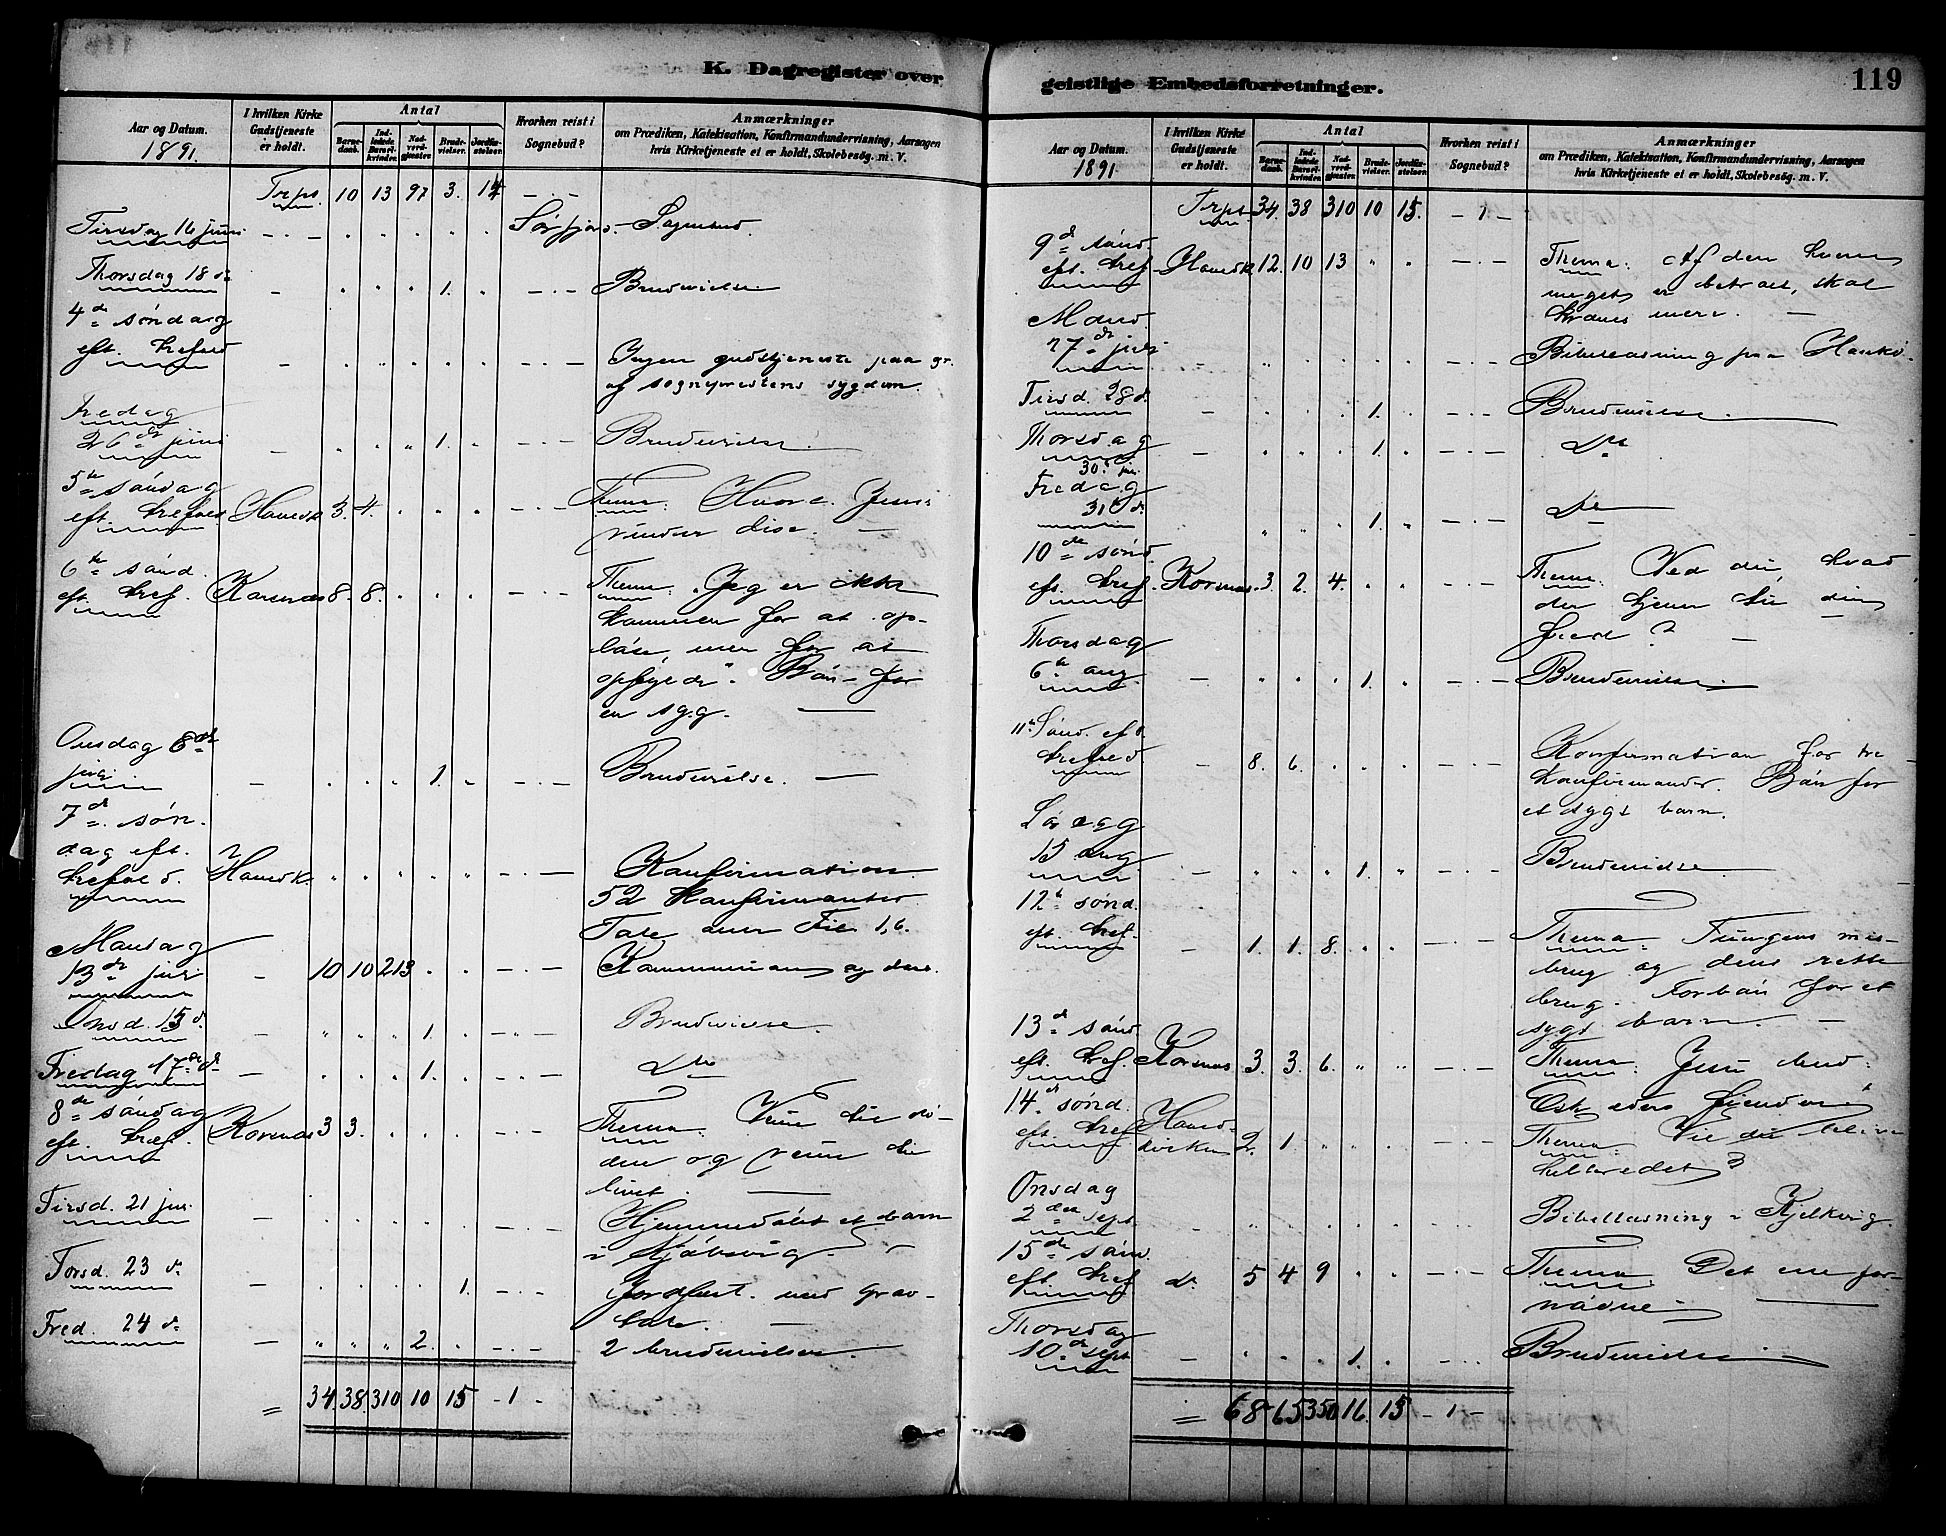 K. Dagregister over
Aar og Datum.
1891.
I hvilken Kirke
Gudstjeneste
er holdt.
Antal
Barnedaab.
Indledede Barselkvinder
Nadverdgjester
Brudevielser.
Jordfæstelser.
Hvorhen reist i
Sognebud?
Anmærkninger
om Prædiken, Katekisation, Konfirmandundervisning, Aarsagen
hvis Kirketjeneste ei er holdt, Skolebesøg. m. V.
Trpt. 10 13 97 3. 14 - . -
Tirsdag 16 juni - . - Sørfjord. - Sognebud.
Thorsdag 18 d. - 1. - . - Brudevielse
4de søndag
eft. trefold - - . - Ingen gudstjeneste paa gr.
af sogneprestens sygdom.
Fredag
26de juni - 1. - . - Brudevielse.
5te søndag
eft. trefold Hovedk. 3. 4. - . - Thema: Hvord. Jesus
vinder dise. -
6te sønd.
eft. tref. Korsnæs 8. 8. - . - Thema: "Jeg er ikke
kommen for at op-
løse, men for at
opfylde". Bøn for
en syg. -
Onsdag 8de
juli - 1. - . - Brudevielse. -
7de søn-
dag eft.
trefold. Hovedk. - . - Konfirmation.
52 konfirmanter.
Tale over Fil. 1,6.
Mandag
13de juli - 10 10 213 - . - Kommunion og dens.
Onsd. 15 d. - 1. - . - Brudevielse.
Fredag 17de d. - 1. - . - Do
8de søndag
eft. tref. Korsnæs 3 3. - . - Thema:
den og vinde
livet. -
Tirsd. 21 jul. - - . - Hjemmedøbt et barn
i
Torsd. 23 d. - 1. - . - Jordfæst. med grav-
tale. -
Fred. 24 d. - 2. - . - 2 brudevielser.
= 34 38. 310 10 15 - 1 -
geistlige Embedsforretninger.
119
Aar og Datum.
1891
I hvilken Kirke
Gudstjeneste
er holdt.
Antal
Barnedaab.
Indledede Barselkvinder
Nadverdgjester
Brudevielser.
Jordfæstelser.
Hvorhen reist i
Sognebud?
Anmærkninger
om Prædiken, Katekisation, Konfirmandundervisning, Aarsagen
hvis Kirketjeneste ei er holdt, Skolebesøg. m. V.
Trpt. 34. 38 310 10 15. - 1 -
9de sønd.
eft. tref. Hovedk. 12. 10 13 - . - Thema: Af den hvem
meget er betroet, skal
kræves mere. -
Mand.
27de juli - . - Bibellæsning paa
Tirsd. 28 d. - 1. - . - Brudevielse.
Thorsdag
30. jul. - 1. - . - Do
Fredag
31 d. 1. - . - Do
10de sønd
eft. tref. Korsnæs. 3. 2. 4. - . - Thema: Ved du, hvad
der tjener til din
fred? -
Thorsdag
6te aug. - 1. - . - Brudevielse.
11te Sønd. eft.
trefold - 8. 6. - . - Konfirmation for tre
konfirmander. Bøn for
et sygt barn.
Lørdag
15 aug - 1. - . - Brudevielse.
12te sønd.
eft. tref. - 1. 1. 8. - . - Thema: Tungens mis-
brug og dens rette
brug. Forbøn for et
sygt barn. -
13de sønd.
eft. tref. Korsnæs 3. 3. 6. - . - Thema: Jesu bud:
Elsk eders fiender
14de sønd.
eft. tref Hoved-
kirken 2. 1. - . - Thema: Vil du blive
helbredet?
Onsdag
2den sept. - - . - Bibellæsning i Kjelkvig.
15de sønd.
eft. tref. do 5 4 9 - . - Thema: Det ene for-
nødne -
Thorsdag
10de sept - 1. - . - Brudevielse
= 68 65 350 16. 15 - 1 -